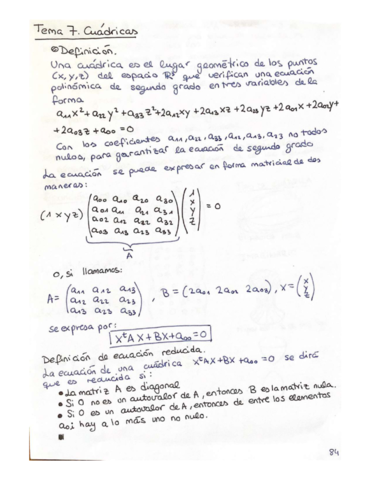 Tema 7. Cuádricas
Definición.
Una cuádrica es el lugar geométrico de los puntos
(x,y,z) del espacio R³ que verifican una ecuación
polinómica de segundo grado en tres variables de la
forma
a₁₁x²+a₂₂y²+a₃₃z²+2a₁₂xy+2a₁₃xz+2a₂₃yz+2a₀₁x+2a₀₂y+
+2a₀₃z+a₀₀=0
Con los coeficientes a₁₁, a₂₂, a₃₃, a₁₂, a₁₃, no todos
nulos, para garantizar la ecuación de segundo grado
La ecuación se puede expresar en forma matricial de dos
maneras:
(1 x y z) (a₀₀ a₁₀ a₂₀ a₃₀ (1
a₀₁ a₁₁ a₂₁ a₃₁ x
a₀₂ a₁₂ a₂₂ a₃₂ y
a₀₃ a₁₃ a₂₃ a₃₃) z) = 0
A
o, si llamamos:
A = (a₁₁ a₁₂ a₁₃
a₁₂ a₂₂ a₂₃
a₁₃ a₂₃ a₃₃), B = (2a₀₁ 2a₀₂ 2a₀₃), X = (x y z)
se expresa por:
XᵗAX+BX+a₀₀=0
Definición de ecuación reducida.
La ecuación de una cuádrica XᵗAX+BX+a₀₀=0 se dirá
que es reducida si:
• La matriz A es diagonal
• Si 0 no es un autovalor de A, entonces B es la matriz nula.
• Si 0 es un autovalor de A, entonces de entre los elementos
a₀ᵢ hay a lo más uno no nulo.
84